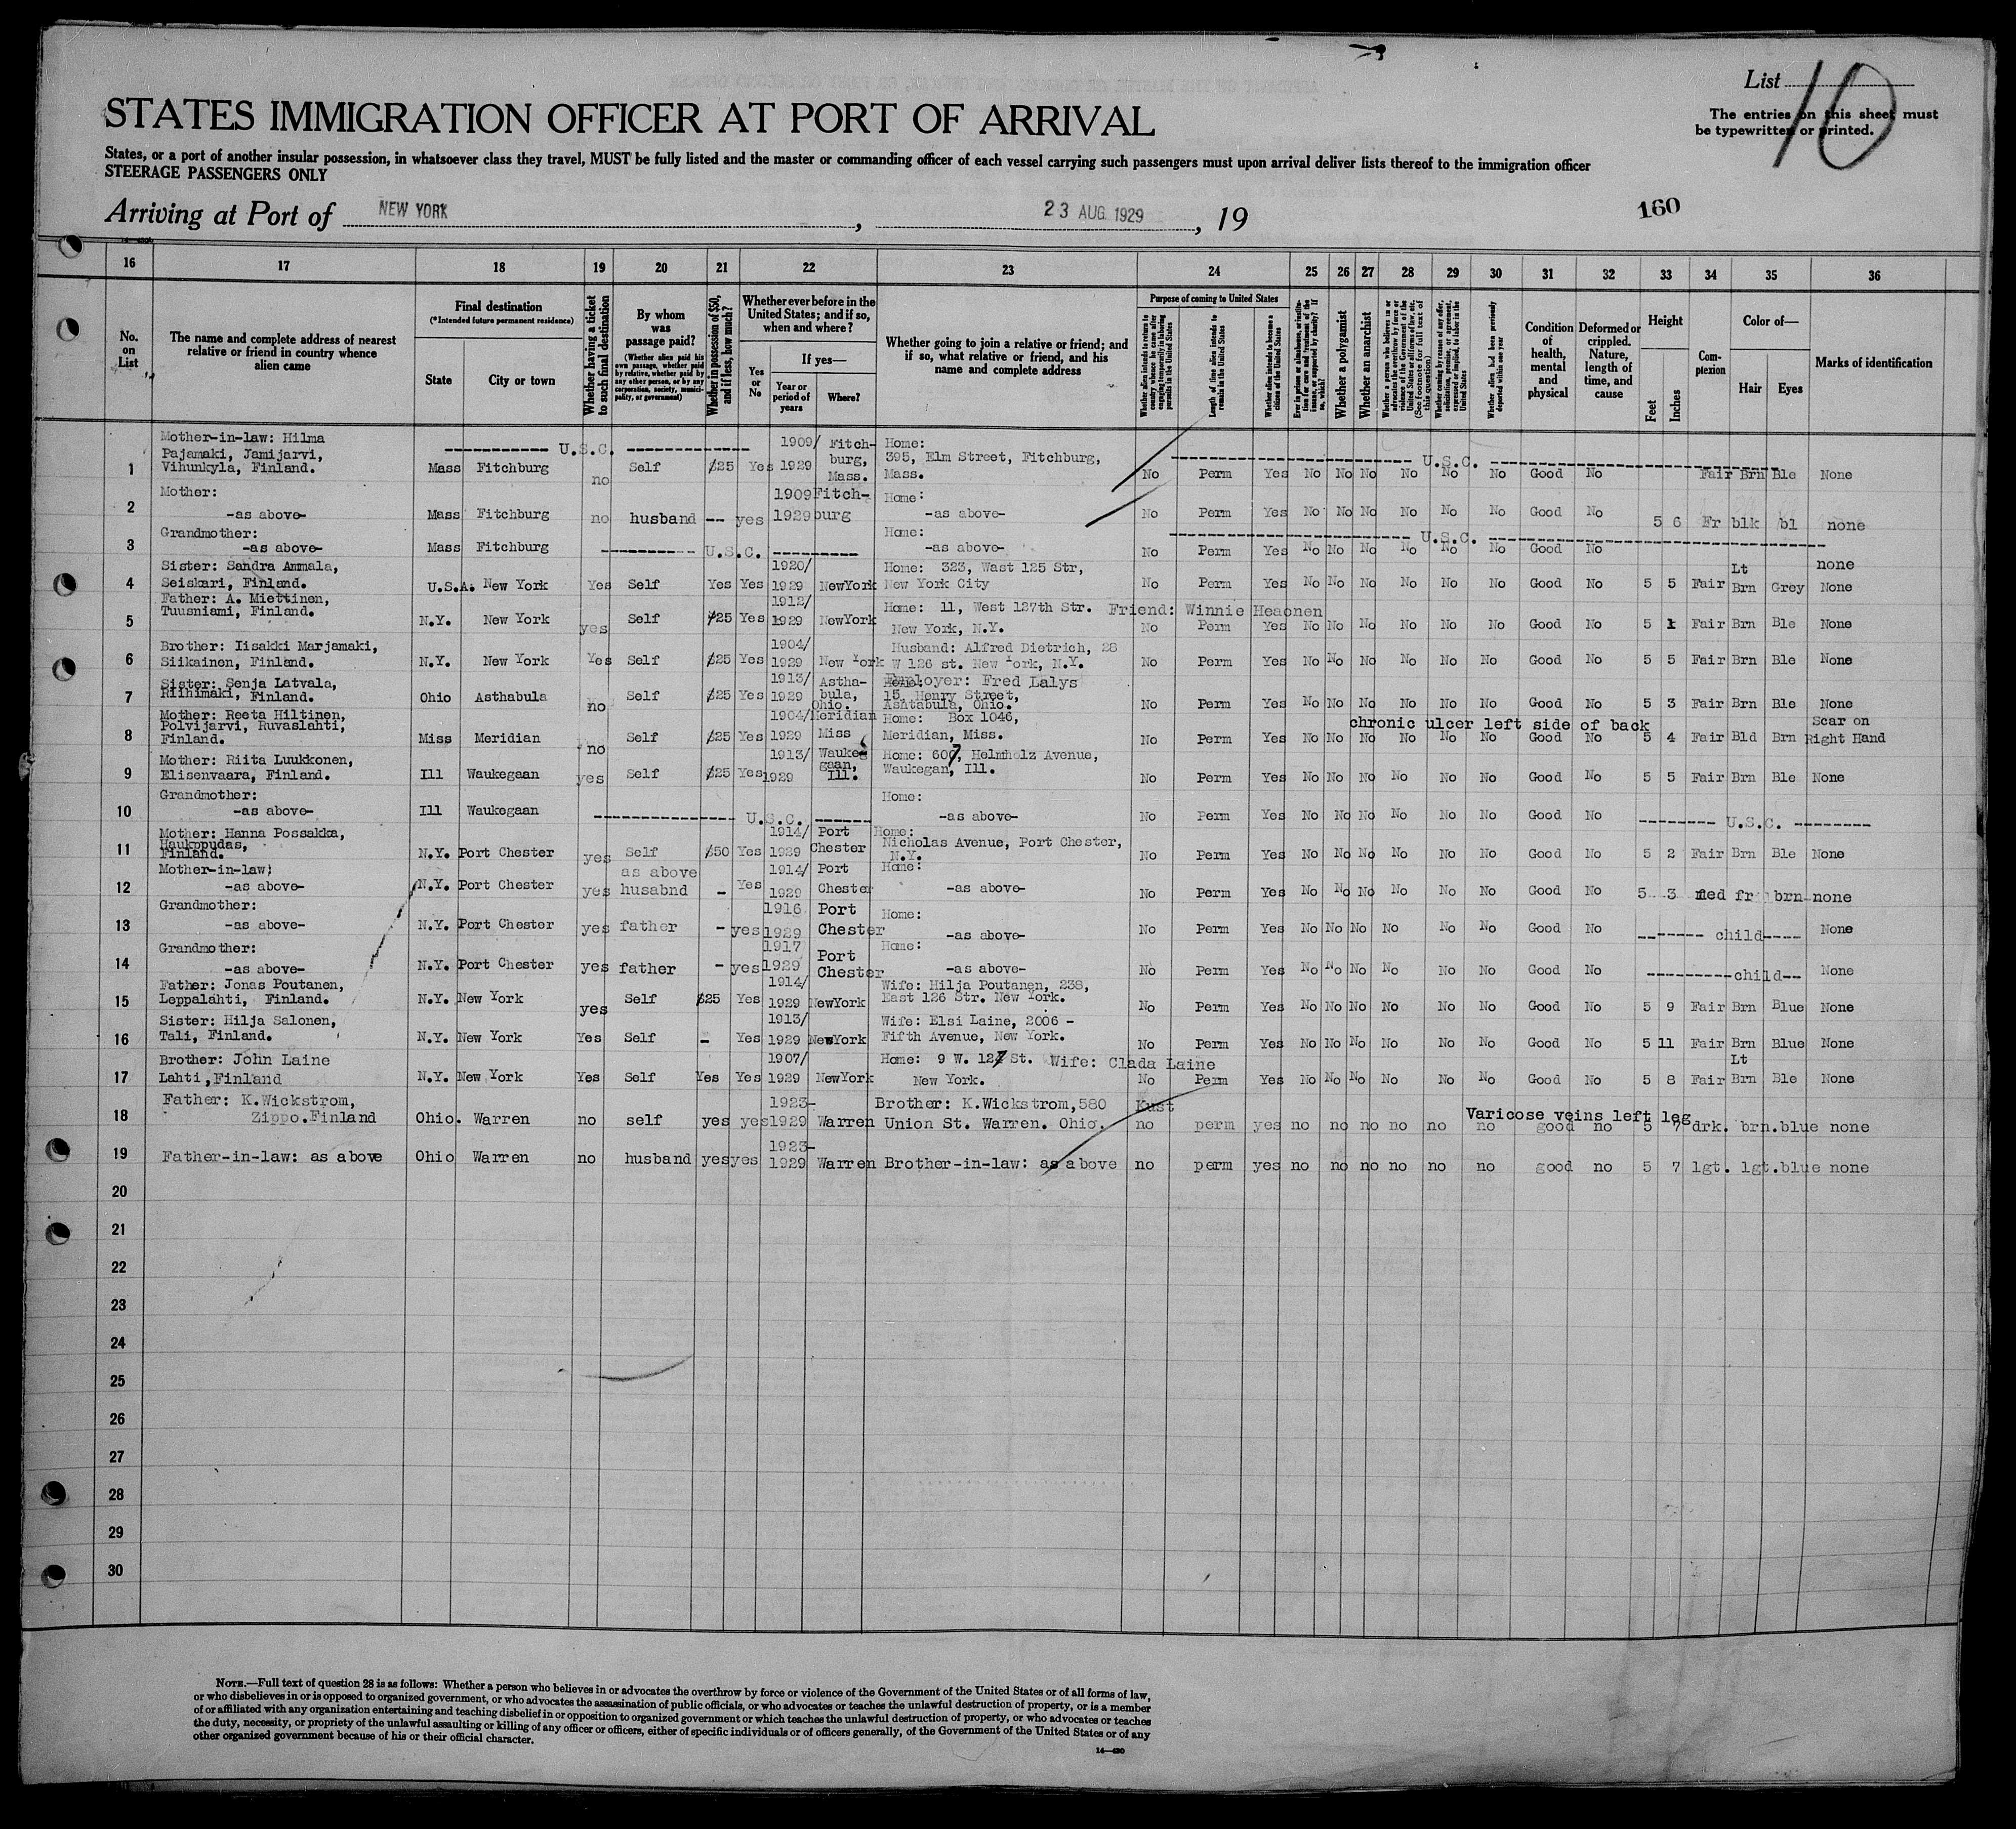 List 10
STATES IMMIGRATION OFFICER AT PORT OF ARRIVAL
The entries on this sheet must
be typewritten or printed.
States, or a port of another insular possession, in whatsoever class they travel, MUST be fully listed and the master or commanding officer of each vessel carrying such passengers must upon arrival deliver lists thereof to the immigration officer
STEERAGE PASSENGERS ONLY
Arriving at Port of NEW YORK, 23 AUG 1929, 19
160
16 17 18 19 20 21 22 23 24 25 26 27 28 29 30 31 32 33 34 35 36
No. on List
The name and complete address of nearest relative or friend in country whence alien came
Final destination
(*Intended future permanent residence)
State
City or town
Whether having a ticket to such final destination
By whom was passage paid?
(Whether alien paid his own passage, whether paid by relative, whether paid by any other person, or by any corporation, society, municipality, or government)
Whether in possession of $50, and if less, how much?
Whether ever before in the United States; and if so, when and where?
Yes or No
If yes—
Year or period of years
Where?
Whether going to join a relative or friend; and if so, what relative or friend, and his name and complete address
Purpose of coming to United States
Length of time alien intends to remain in the United States
Whether alien intends to become a citizen of the United States
Whether a polygamist
Whether an anarchist
Whether alien had been previously deported within one year
Condition of health, mental and physical
Deformed or crippled. Nature, length of time, and cause
Height
Feet
Inches
Complexion
Color of—
Hair
Eyes
Marks of identification
1 Mother-in-law: Hilma Pajamaki, Jamijarvi, Vihunkyla, Finland. U.S.C. Mass Fitchburg no Self $25 Yes 1909/1929 Fitchburg, Mass. Home: 395, Elm Street, Fitchburg, Mass. U.S.C. No Perm Yes No No No No No No Good No Fair Brn Ble None
2 Mother: -as above- Mass Fitchburg no husband -- yes 1909 1929 Fitchburg Home: -as above- No Perm Yes No No No No No No Good No 5 6 Fr blk bl none
3 Grandmother: -as above- Mass Fitchburg U.S.C. Home: -as above- U.S.C. No Perm Yes No No No No No No Good No none
4 Sister: Sandra Ammala, Seiskari, Finland. U.S.A. New York Yes Self Yes Yes 1920/1929 NewYork Home: 323, Wast 125 Str, New York City No Perm Yes No No No No No No Good No 5 5 Fair Lt Brn Grey None
5 Father: A. Miettinen, Tuusniami, Finland. N.Y. New York yes Self $25 Yes 1912/1929 NewYork Home: 11, West 127th Str. New York, N.Y. Friend: Winnie Heaonen No Perm Yes No No No No No No Good No 5 1 Fair Brn Ble None
6 Brother: Iisakki Marjamaki, Siikainen, Finland. N.Y. New York Yes Self $25 Yes 1904/1929 New York Husband: Alfred Dietrich, 28 W 126 st. New York, N.Y. No Perm Yes No No No No No No Good No 5 5 Fair Brn Ble None
7 Sister: Senja Latvala, Riihimaki, Finland. Ohio Asthabula no Self $25 Yes 1913/1929 Asthabula, Ohio. Employer: Fred Lalys 15, Henry Street, Ashtabula, Ohio. No Perm Yes No No No No No No Good No 5 3 Fair Brn Ble None
8 Mother: Reeta Hiltinen, Polvijarvi, Ruvaslahti, Finland. Miss Meridian no Self $25 Yes 1904/1929 Meridian Miss Home: Box 1046, Meridian, Miss. chronic ulcer left side of back No Perm Yes No No No No No No Good No 5 4 Fair Bld Brn Scar on Right Hand
9 Mother: Riita Luukkonen, Elisenvaara, Finland. Ill Waukegaan yes Self $25 Yes 1913/1929 Waukegaan, Ill. Home: 607, Helmholz Avenue, Waukegan, Ill. No Perm Yes No No No No No No Good No 5 5 Fair Brn Ble None
10 Grandmother: -as above- Ill Waukegaan U.S.C. Home: -as above- No Perm Yes No No No No No No Good No U.S.C.
11 Mother: Hanna Possakka, Haukppudas, Finland. N.Y. Port Chester yes Self $50 Yes 1914/1929 Port Chester Home: Nicholas Avenue, Port Chester, N.Y. No Perm Yes No No No No No No Good No 5 2 Fair Brn Ble None
12 Mother-in-law: -as above- N.Y. Port Chester yes as above husabnd - Yes 1914/1929 Port Chester Home: -as above- No Perm Yes No No No No No No Good No 5 3 med fr brn none
13 Grandmother: -as above- N.Y. Port Chester yes father - yes 1916 1929 Port Chester Home: -as above- No Perm Yes No No No No No No Good No child None
14 Grandmother: -as above- N.Y. Port Chester yes father - yes 1917 1929 Port Chester Home: -as above- No Perm Yes No No No No No No Good No child None
15 Father: Jonas Poutanen, Leppalahti, Finland. N.Y. New York yes Self $25 Yes 1914/1929 NewYork Wife: Hilja Poutanen, 238, East 126 Str. New York. No Perm Yes No No No No No No Good No 5 9 Fair Brn Blue None
16 Sister: Hilja Salonen, Tali, Finland. N.Y. New York Yes Self - Yes 1913/1929 NewYork Wife: Elsi Laine, 2006 - Fifth Avenue, New York. No Perm Yes No No No No No No Good No 5 11 Fair Brn Blue None
17 Brother: John Laine Lahti, Finland N.Y. New York Yes Self Yes Yes 1907/1929 NewYork Home: 9 W. 127 St. New York. Wife: Clada Laine No Perm Yes No No No No No No Good No 5 8 Fair Lt Brn Ble None
18 Father: K.Wickstrom, Zippo.Finland Ohio. Warren no self yes yes 1923-1929 Warren Brother: K.Wickstrom, 580 Kust Union St. Warren. Ohio. Varicose veins left leg no perm yes no no no no no no good no 5 7 drk. brn. blue none
19 Father-in-law: as above Ohio Warren no husband yes yes 1923-1929 Warren Brother-in-law: as above no perm yes no no no no no no good no 5 7 lgt. lgt. blue none
20
21
22
23
24
25
26
27
28
29
30
NOTE.—Full text of question 28 is as follows: Whether a person who believes in or advocates the overthrow by force or violence of the Government of the United States or of all forms of law,
or who disbelieves in or is opposed to organized government, or who advocates the assassination of public officials, or who advocates or teaches the unlawful destruction of property, or is a member
of or affiliated with any organization entertaining and teaching disbelief in or opposition to organized government or which teaches the unlawful destruction of property, or who advocates or teaches
the duty, necessity, or propriety of the unlawful assaulting or killing of any officer or officers, either of specific individuals or of officers generally, of the Government of the United States or of any
other organized government because of his or their official character.
14—430